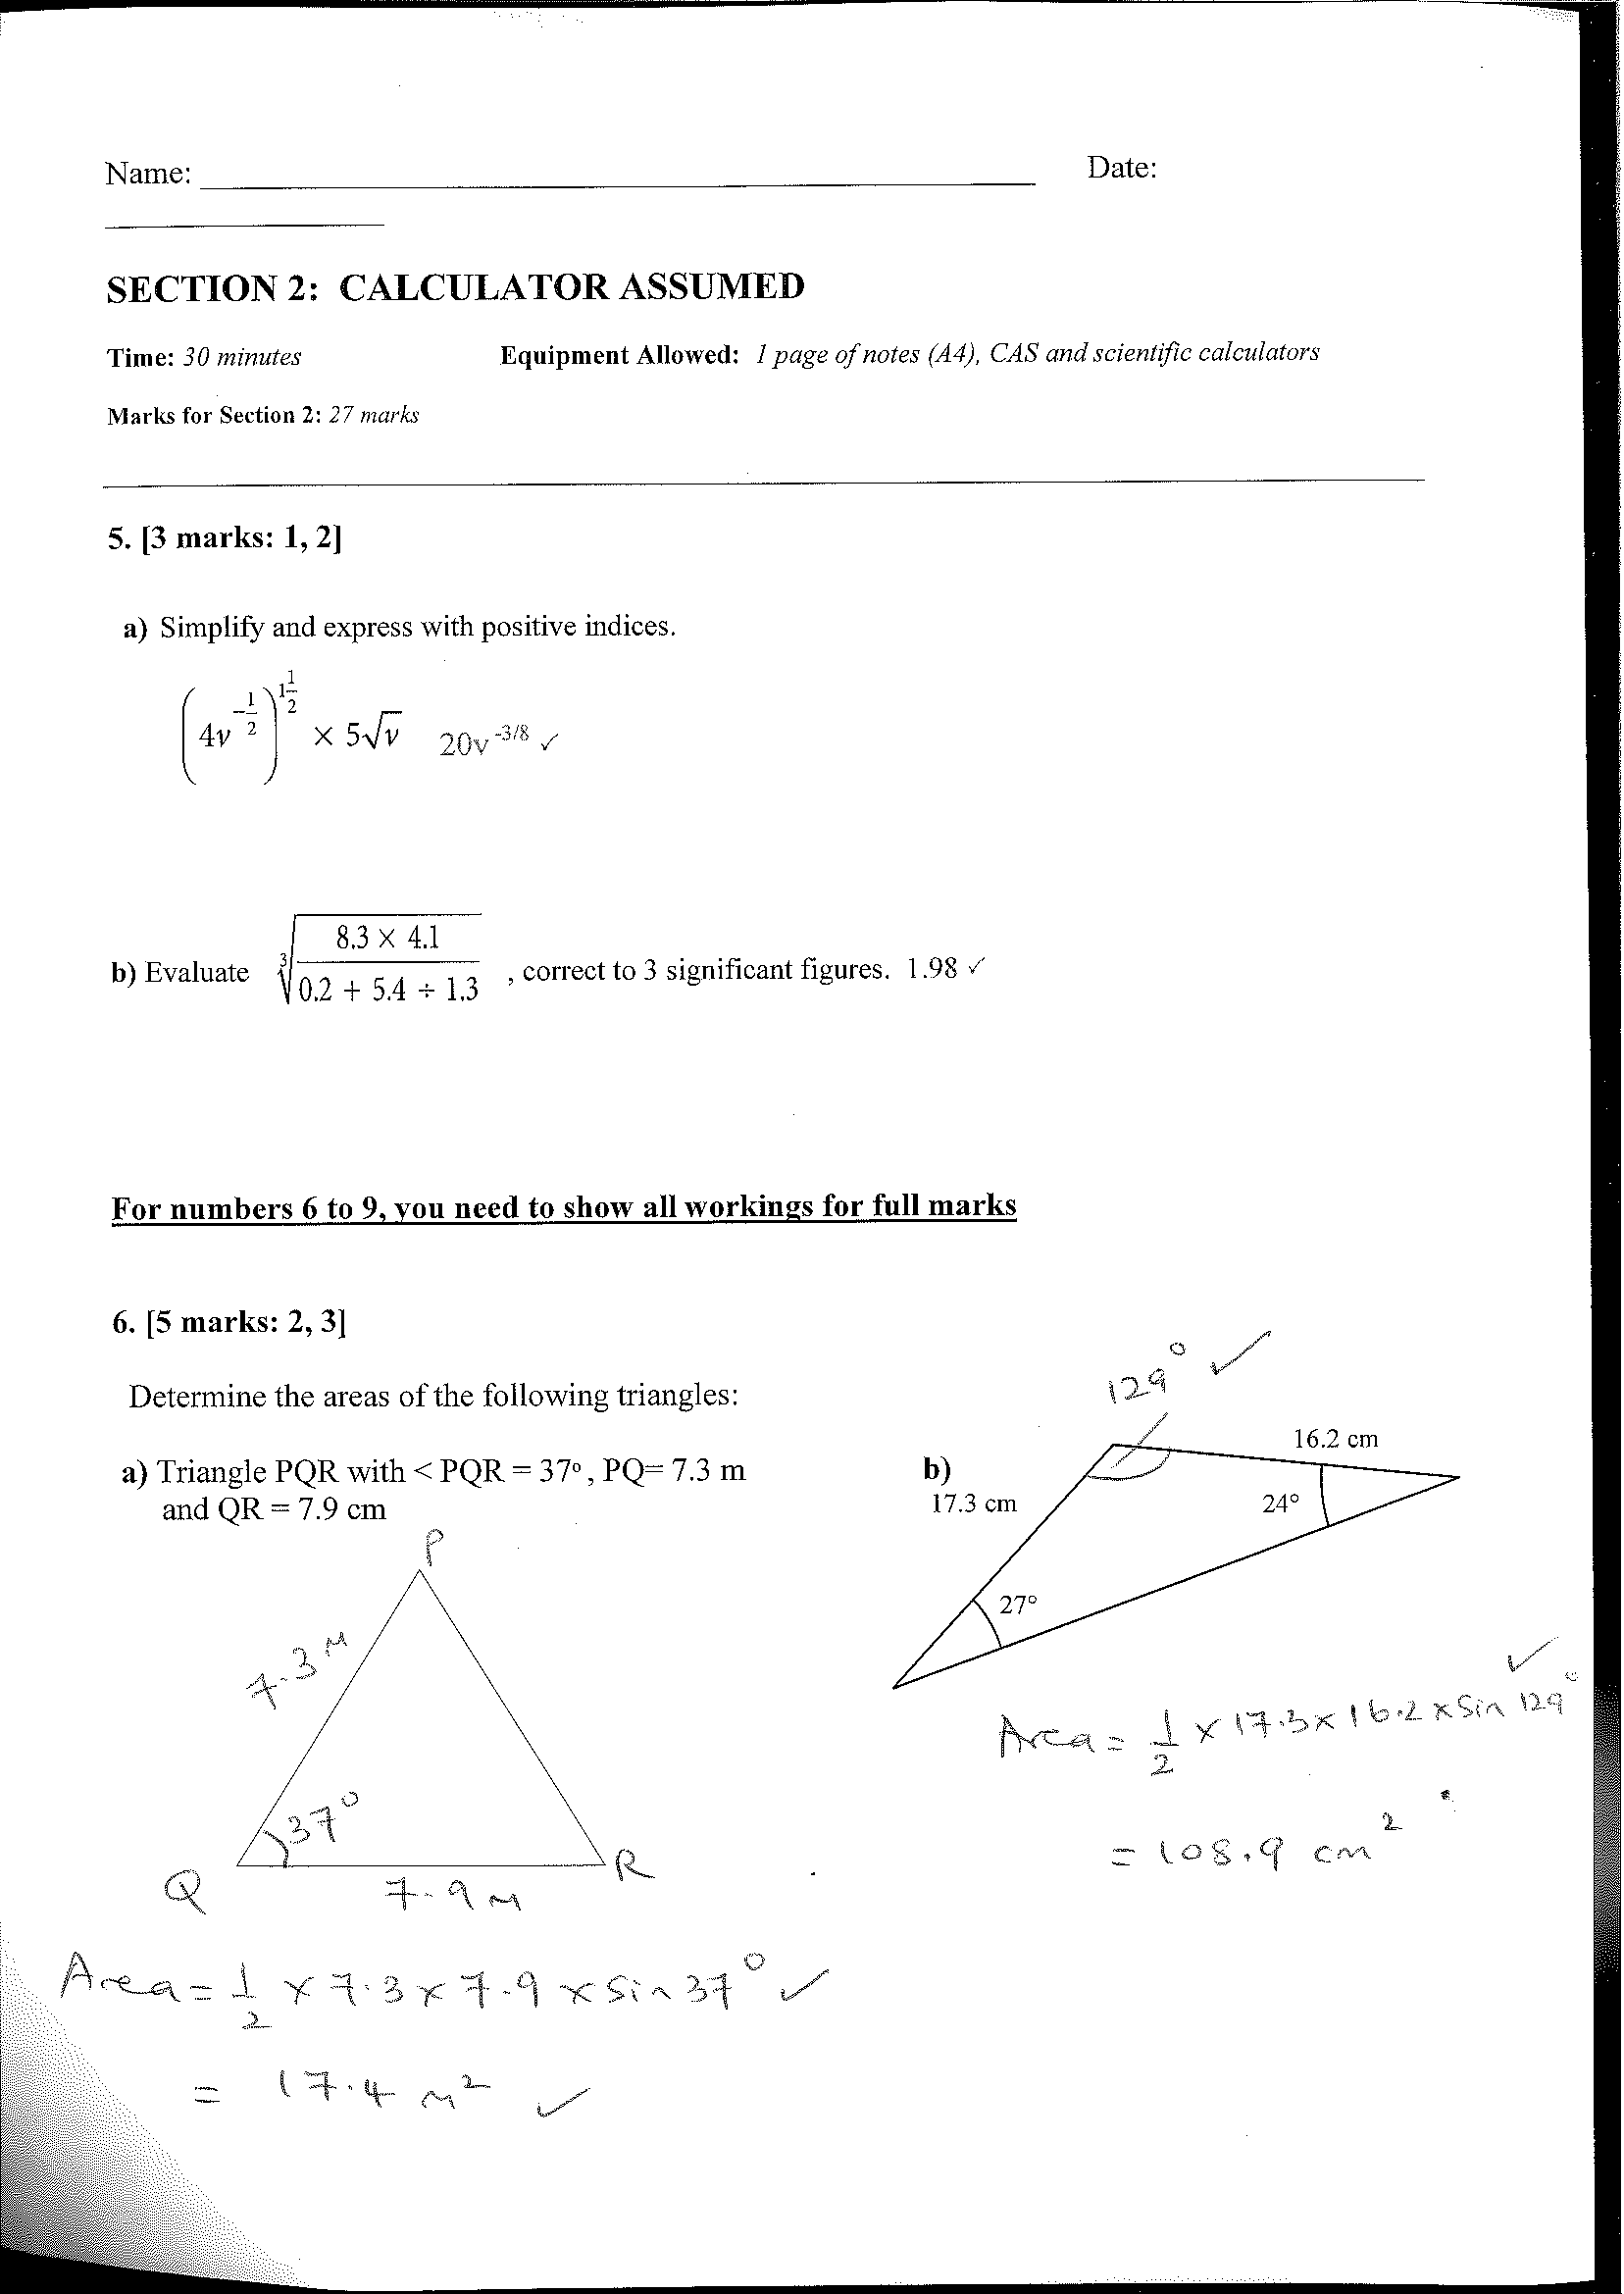 Name: ____ Date:
____
SECTION 2: CALCULATOR ASSUMED
Time: 30 minutes Equipment Allowed: 1 page of notes (A4), CAS and scientific calculators
Marks for Section 2: 27 marks
5. [3 marks: 1, 2]
a) Simplify and express with positive indices.
(4v^{-1/2})^{1 1/2} × 5√v 20v^{-3/8} ✓
b) Evaluate ∛((8.3 × 4.1)/(0.2 + 5.4 ÷ 1.3)) , correct to 3 significant figures. 1.98 ✓
For numbers 6 to 9, you need to show all workings for full marks
6. [5 marks: 2, 3]
Determine the areas of the following triangles:
a) Triangle PQR with < PQR = 37º , PQ= 7.3 m
and QR = 7.9 cm
P
7.3 M
37°
Q
R
7.9 M
Area = 1/2 × 7.3 × 7.9 × sin 37° ✓
= 17.4 M² ✓
b)
129° ✓
16.2 cm
17.3 cm
24°
27°
Area = 1/2 × 17.3 × 16.2 × sin 129° ✓
= 108.9 cm²